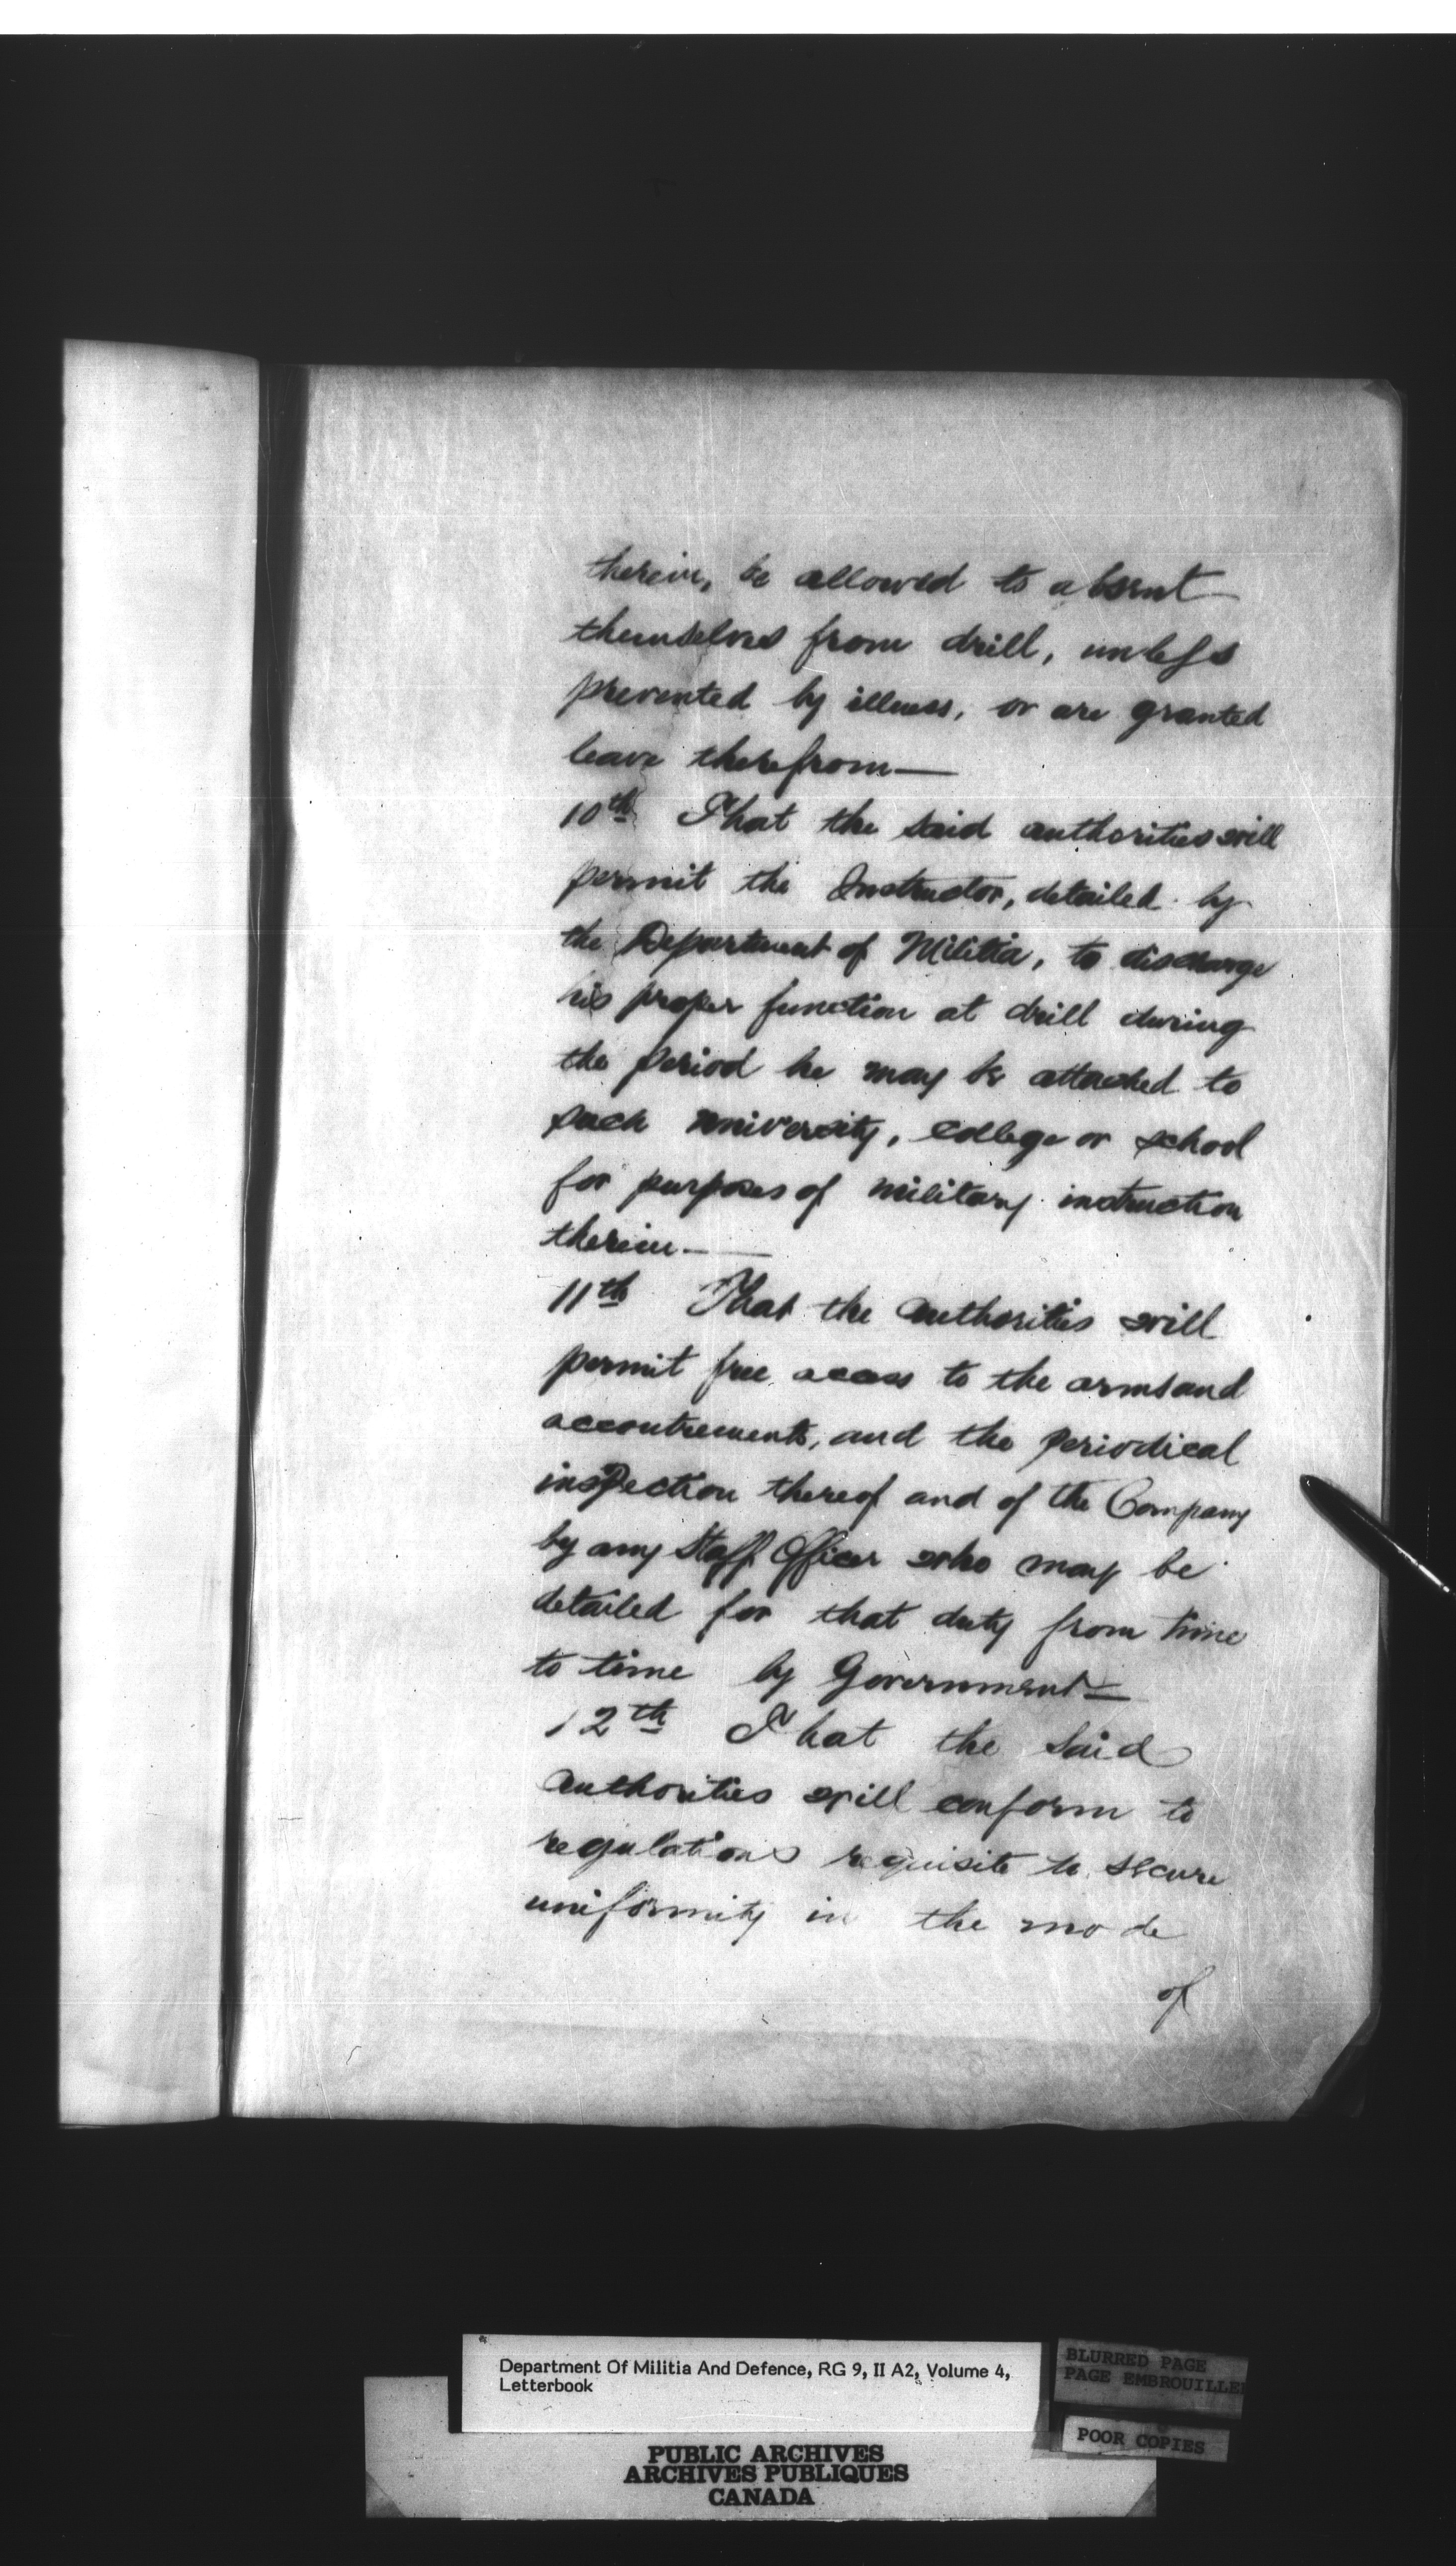 therein, be allowed to absent
themselves from drill, unless
prevented by illness, or are granted
leave therefrom—
10th That the said authorities will
permit the Instructor, detailed by
the Department of Militia, to discharge
his proper function at drill during
the period he may be attached to
such university, college or school
for purposes of military instruction
therein—
11th That the authorities will
permit free access to the arms and
accoutrements, and the periodical
inspection thereof and of the Company
by any Staff Officer who may be
detailed for that duty from time
to time by Government—
12th That the said
authorities will conform to
regulations requisite to secure
uniformity in the mode
of
Department Of Militia And Defence, RG 9, II A2, Volume 4,
Letterbook
BLURRED PAGE
PAGE EMBROUILLEE
POOR COPIES
PUBLIC ARCHIVES
ARCHIVES PUBLIQUES
CANADA